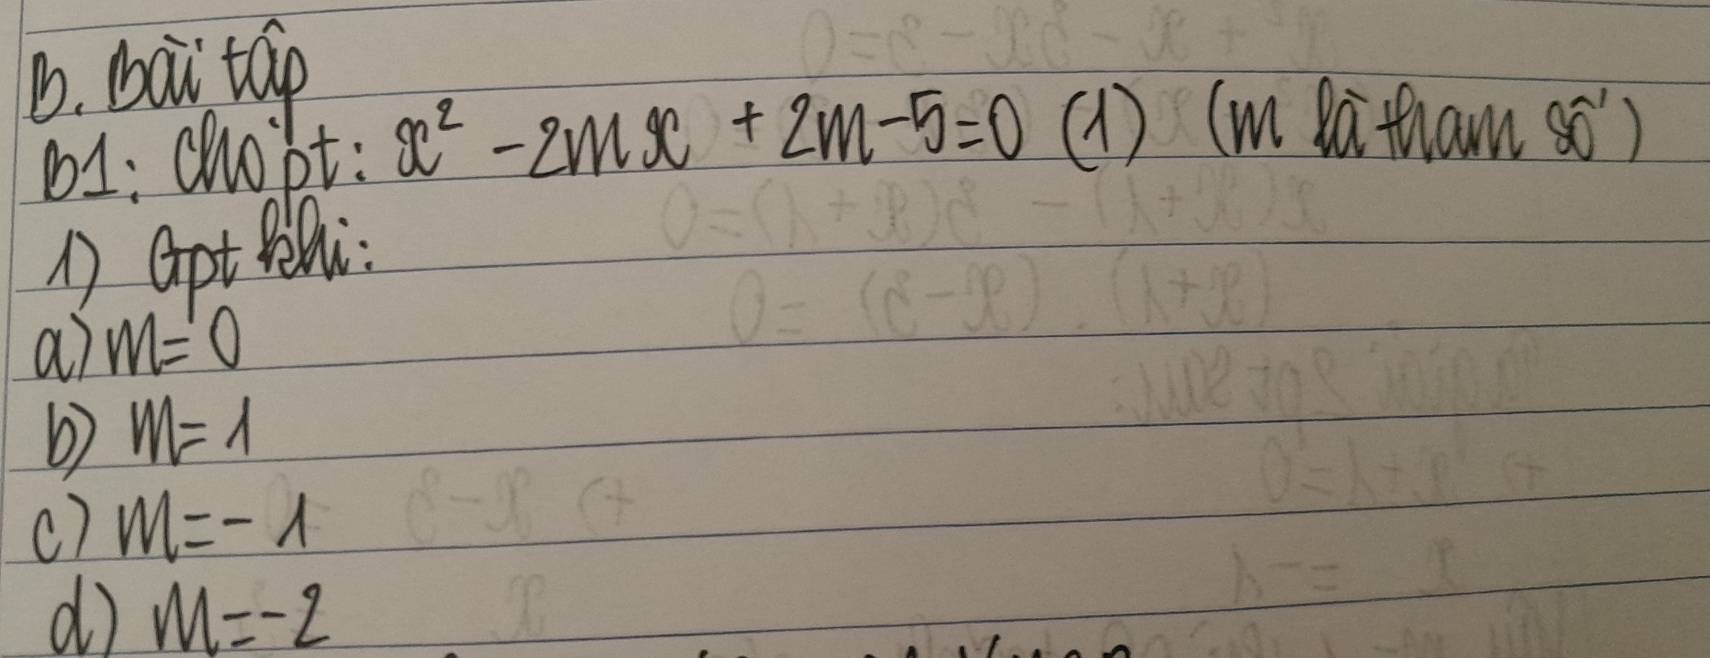 B. Bài tập
B1: Cho pt: x² - 2mx + 2m - 5 = 0 (1) (m là tham số)
1) Gpt khi:
a) m = 0
b) m = 1
c) m = - 1
d) m = - 2